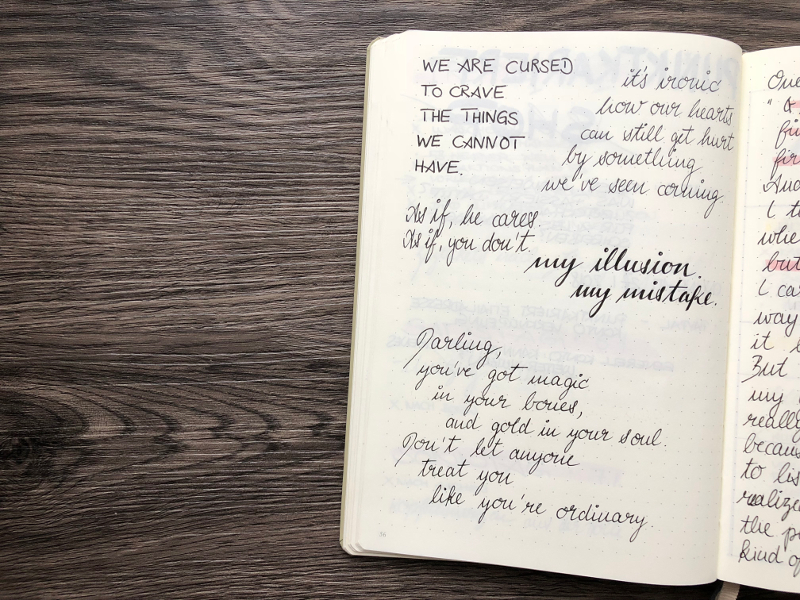 WE ARE CURSED
TO CRAVE
THE THINGS
WE CANNOT
HAVE.
it's ironic
how our hearts
can still get hurt
by something
we've seen coming.
As if, he cares.
As if, you don't.
my illusion.
my mistake.
Darling,
you've got magic
in your bones,
and gold in your soul.
Don't let anyone
treat you
like you're ordinary.
One
"
And
I
whe
but
I ca
way
it
But
my
really
becaus
to lis
realize
the p
kind of